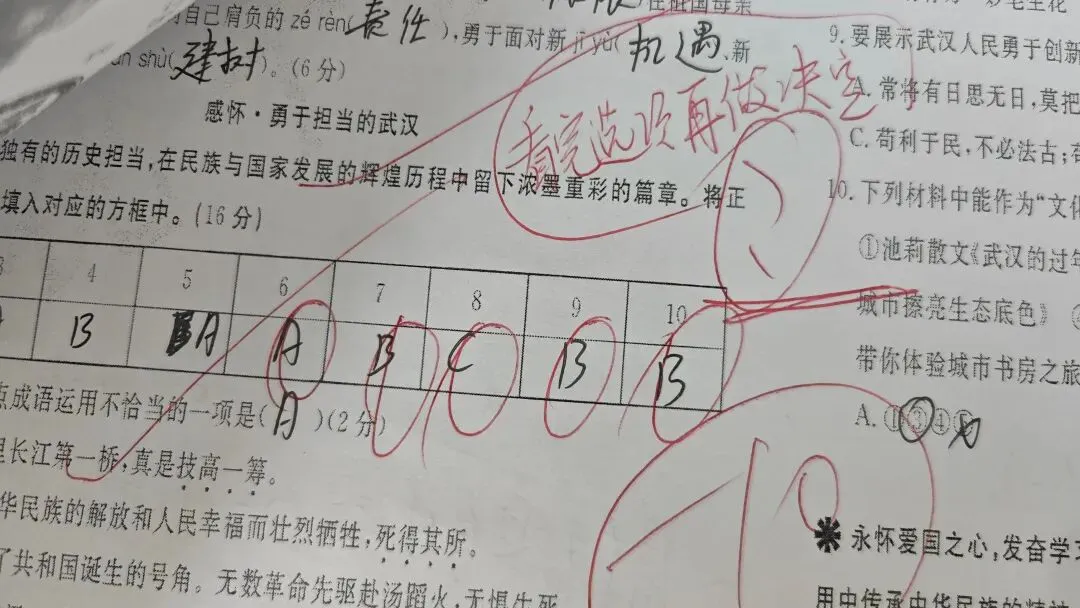 自己肩负的 zé rèn(责任),勇于面对新 jī yù(机遇、新
shù(建树)。(6分)
感怀·勇于担当的武汉
独有的历史担当,在民族与国家发展的辉煌历程中留下浓墨重彩的篇章。将正
填入对应的方框中。(16分)
看完选项再做决定
4 5 6 7 8 9 10
B A A B C B B
点成语运用不恰当的一项是(A)(2分)
里长江第一桥,真是技高一筹。
华民族的解放和人民幸福而壮烈牺牲,死得其所。
了共和国诞生的号角。无数革命先驱赴汤蹈火,无惧生死
-10
9.要展示武汉人民勇于创新
A.常将有日思无日,莫把
C.苟利于民,不必法古;
10.下列材料中能作为“文化
①池莉散文《武汉的过年
城市擦亮生态底色》
带你体验城市书房之旅
A.①③④⑤
永怀爱国之心,发奋学习
用中传承中华民族的精神